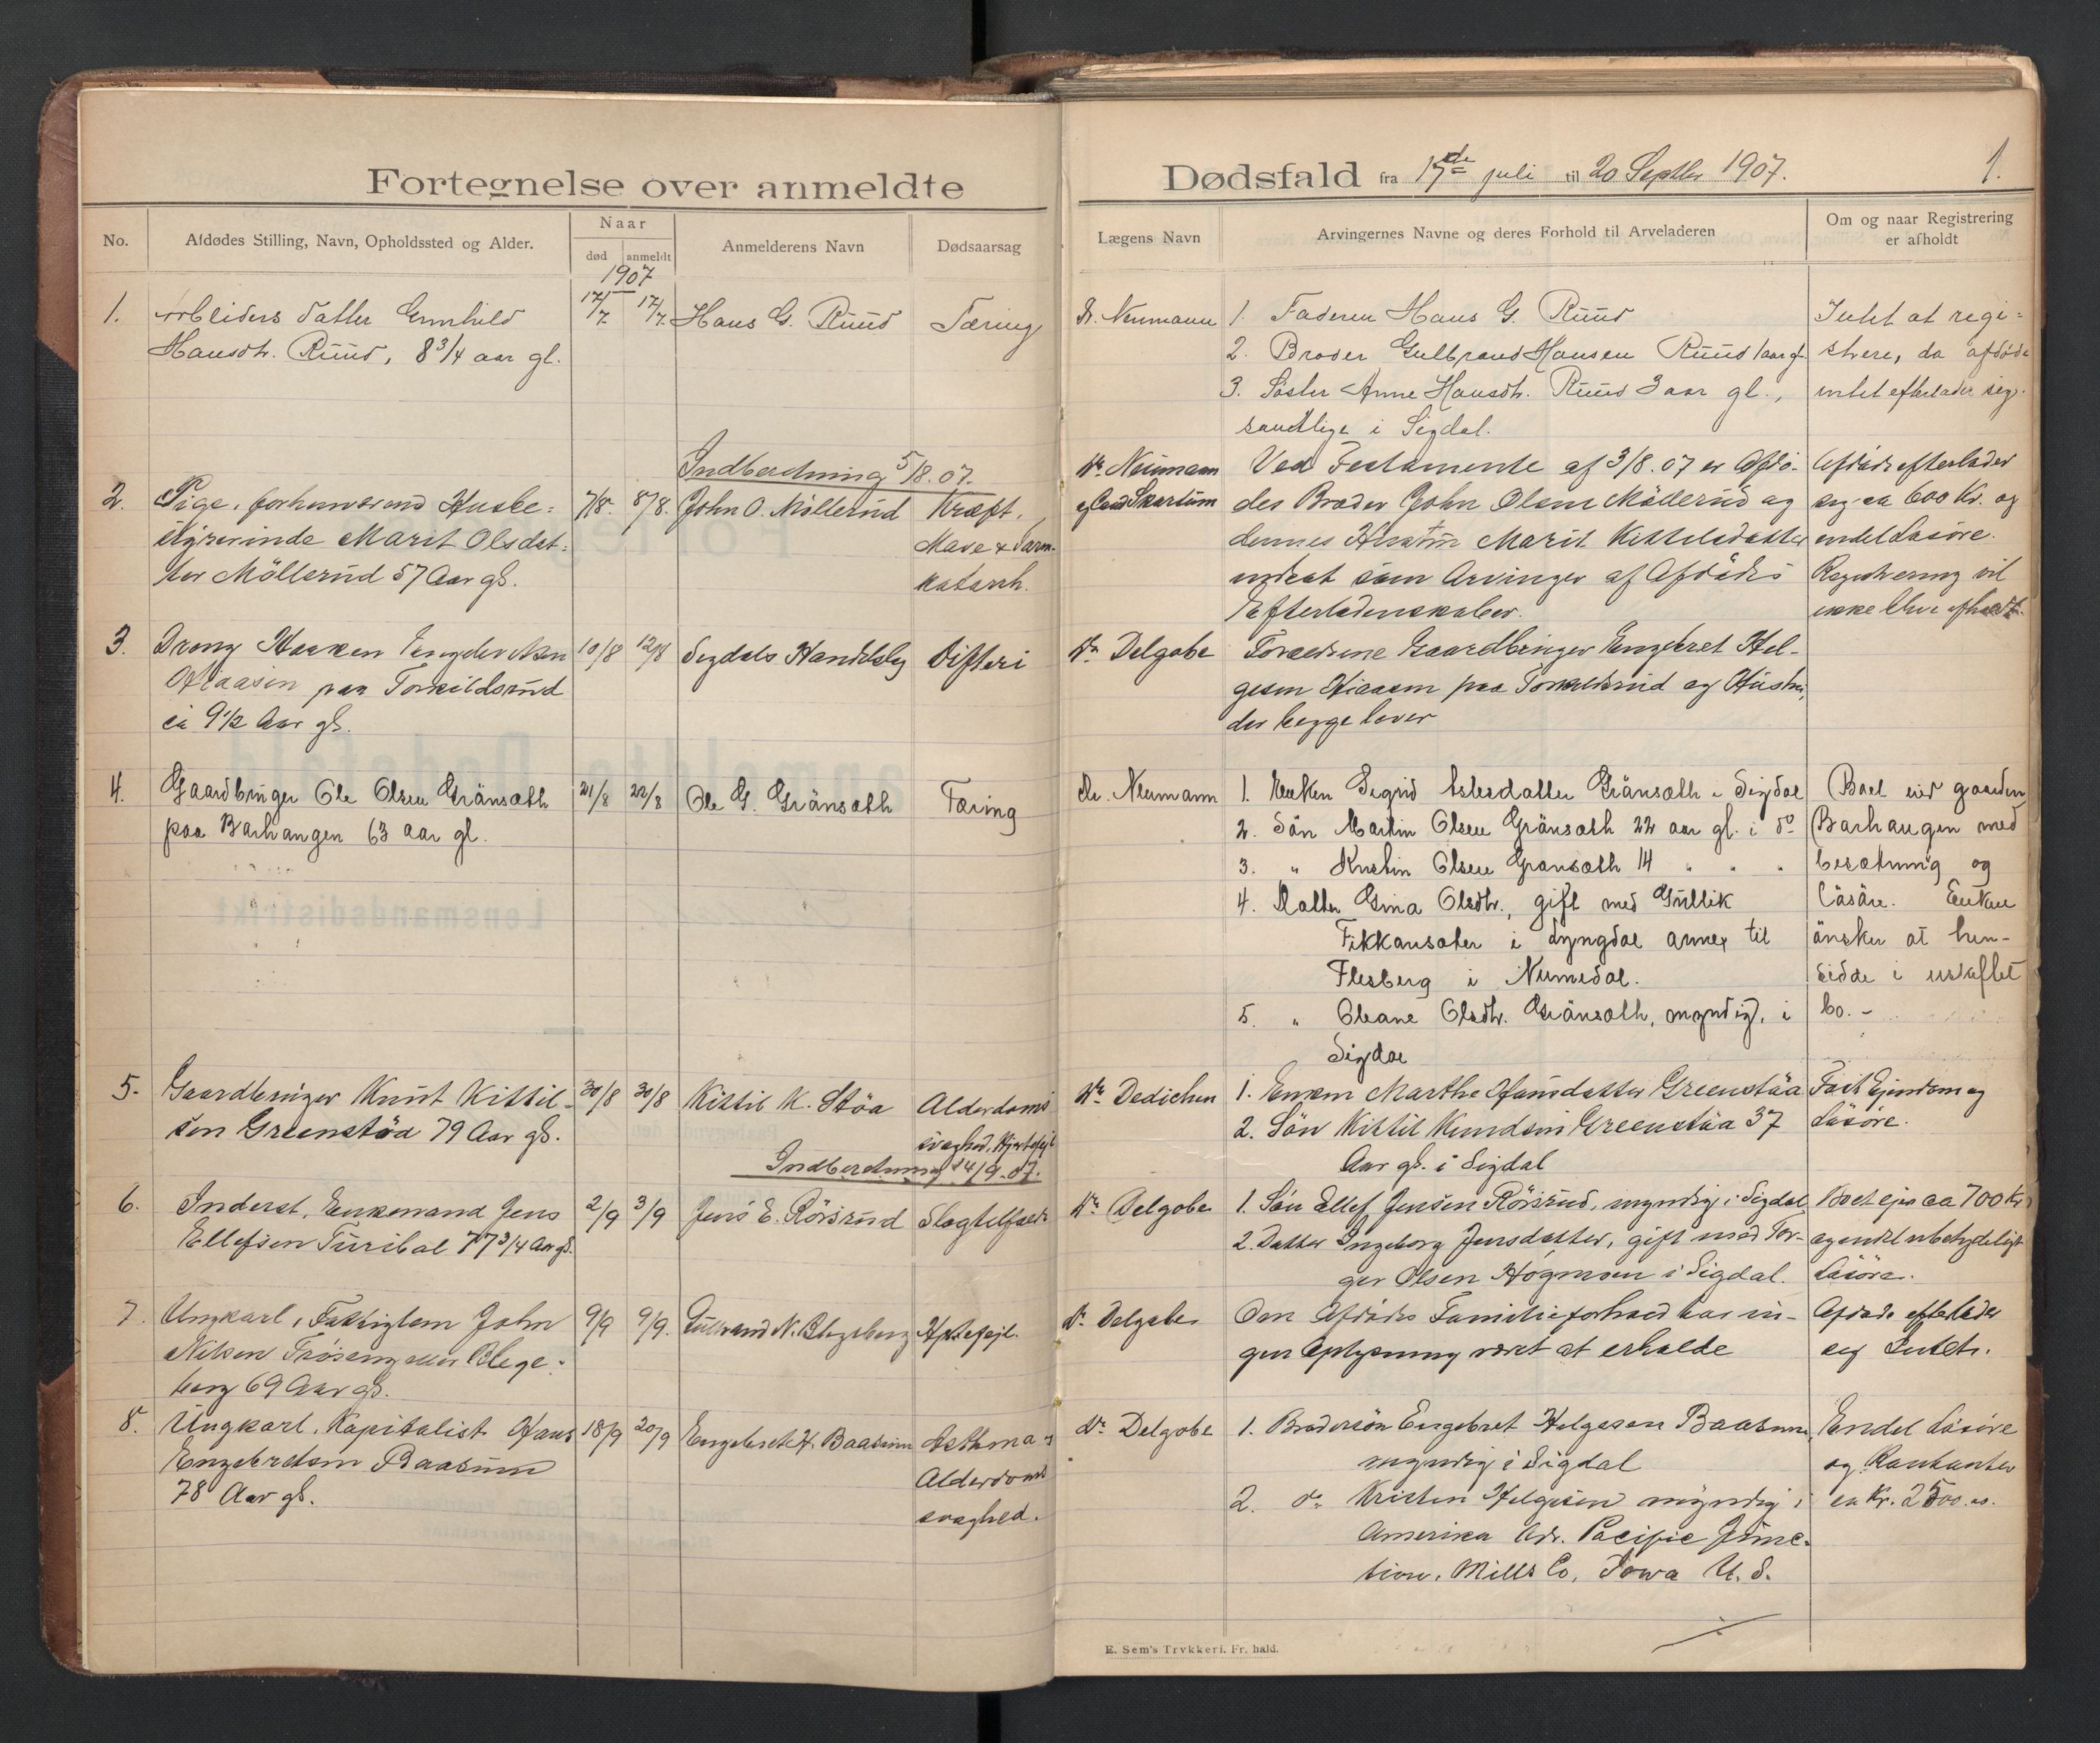 Fortegnelse over anmeldte
No.
Afdødes Stilling, Navn, Opholdssted og Alder.
Naar
død
anmeldt
Anmelderens Navn
Dødsaarsag
1907
1. Arbeiders datter Gunhild 17/7. 17/7. Hans G. Ruud Tæring
Hansdtr. Ruud, 8 3/4 aar gl.
Indberetning 5/8. 07.
2. Pige, forhenværend Husbe= 7/8. 8/8. John O. Möllerud Kræft,
styrerinde Marit Olsdat= Mave & Tarm-
ter Möllerud 57 Aar gl. katarrh.
3. Dreng Haaken Engebretsen 10/8 12/8 Sigdals Handelslag Difteri
Aaasen paa Torkildsrud
ca 9 1/2 Aar gl.
4. Gaardbruger Ole Olsen Gränsæth 21/8 22/8 Ole G. Gränsæth Tæring
paa Barhaugen 63 aar gl.
5. Gaardbruger Knut Kittil- 30/8 30/8 Kittil K. Stöa Alderdoms
sen Greenstöa 79 Aar gl. svaghed, Hjertefejl
Indberetning 4/9. 07.
6. Inderst, Enkemand Jens 2/9 3/9 Jens E. Rörsrud Slagtilfælde
Ellefsen Turibal 77 3/4 Aar gl.
7. Ungkarl, Fattiglem John 9/9 9/9. Gulbrand N. Blegeberg Hjertefejl.
Nilsen Frøseng eller Blege=
berg 69 Aar gl.
8. Ungkarl, Kapitalist Hans 18/9 20/9 Engebret H. Baasum Asthma
Engebretsen Baasum Alderdoms
78 Aar gl. svaghed.
Dødsfald fra 17de juli til 20 Septbr 1907. 1.
Lægens Navn
Arvingernes Navne og deres Forhold til Arveladeren
Om og naar Registrering
er afholdt
Dr. Neumann 1. Faderen Hans G. Ruud Intet at regi=
2. Broder Gulbrand Hansen Ruud 1 aar gl. strere, da afdøde
3. Søster Anne Hansdtr. Ruud 3 aar gl., intet efterlader sig.
samtlige i Sigdal.
Dr. Neumann Ved Testamente af 3/8. 07 er Afdö- Afdöde efterlader
og Cand Skartum des Broder John Olsen Möllerud og sig ca 600 Kr. og
dennes Hustru Marit Kittelsdatter endel Lösöre.
indsat som Arvinger af Afdödes Registrering vil
Efterladenskaber. ikke blive afholdt.
Dr. Delgobe Forældrene Gaardbruger Engebret Hel-
gesen Aaasen paa Torkildsrud og Hustru,
der begge lever
Dr. Neumann 1. Enken Sigrid Eilersdatter Gränsæth i Sigdal Boet eier gaarden
2. Sön Martin Olsen Gränsæth 22 aar gl. i do Barhaugen med
3. " Kristin Olsen Gränsæth 14 " " " besætning og
4. Datter Gina Olsdtr., gift med Gullik lösöre. Enken
Fikkansæter i Lyngdal annex til önsker at hen-
Flesberg i Numedal. sidde i uskiftet
5. " Oleane Olsdtr. Gränsæth, myndig, i bo. -
Sigdal
Dr. Dedichen 1. Enken Marthe Hansdatter Greenstöa Fast Ejendom og
2. Sön Kittil Knudsen Greenstöa 37 Lösöre.
Aar gl. i Sigdal
Dr. Delgobe 1. Sön Ellef Jensen Rörsrud, myndig i Sigdal Boet ejer ca 700 Kr
2. Datter Ingeborg Jensdatter, gift med Tor- og endel ubetydeligt
ger Olsen Högmoen i Sigdal. Lösöre.
Dr. Delgobe Om Afdödes Familieforhold har in- Afdöde efterlader
gen Oplysning været at erholde sig Intet.
Dr. Delgobe 1. Brodersön Engebret Helgesen Baasum, Endel Lösöre
myndig i Sigdal og Kontanter
2. do Kristen Helgesen myndig i ca Kr. 2500.00.
Amerika Adr. Pacific Junc-
tion, Mills Co, Iowa U. S.
E. Sem's Trykkeri. Fr. hald.